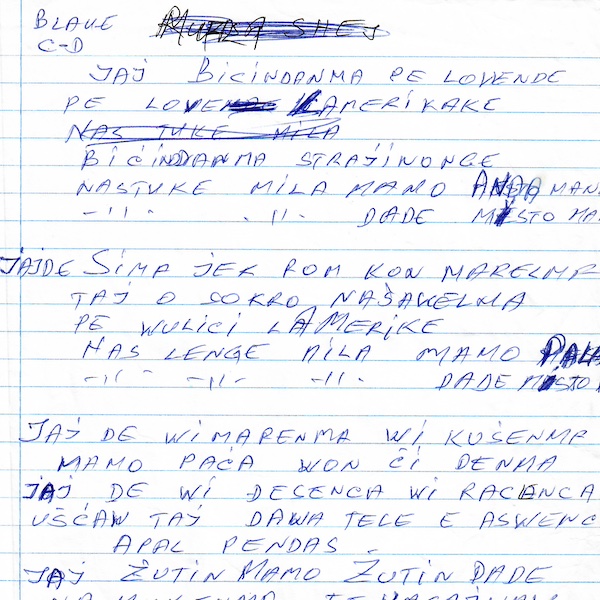 BLAUE
C-D
JAJ BIĆINDANMA PE LOVENDE
PE LOVE LAMERIKAKE
NAS TUKE MILA
BIĆINDANMA STRAJINONGE
NASTUKE MILA MAMO ANDA MAN
-11- -11- DADE MISTO MA
JAJDE SIMA JEK ROM KON MARELMA
TAJ O SOKRO NAŠAWELMA
PE WULICI LAMERIKE
NAS LENGE MILA MAMO PALA
-11- -11- -11- DADE MISTO
JAJ DE WI MARENMA WI KUŠENMA
MAMO PAĆA WON ČI DENMA
JAJ DE WI DESENCA WI RACENCA
UŠĆAW TAJ DAWA TELE E ASWENC
APAL PENDAS
JAJ ŽUTIN MAMO ŽUTIN DADE